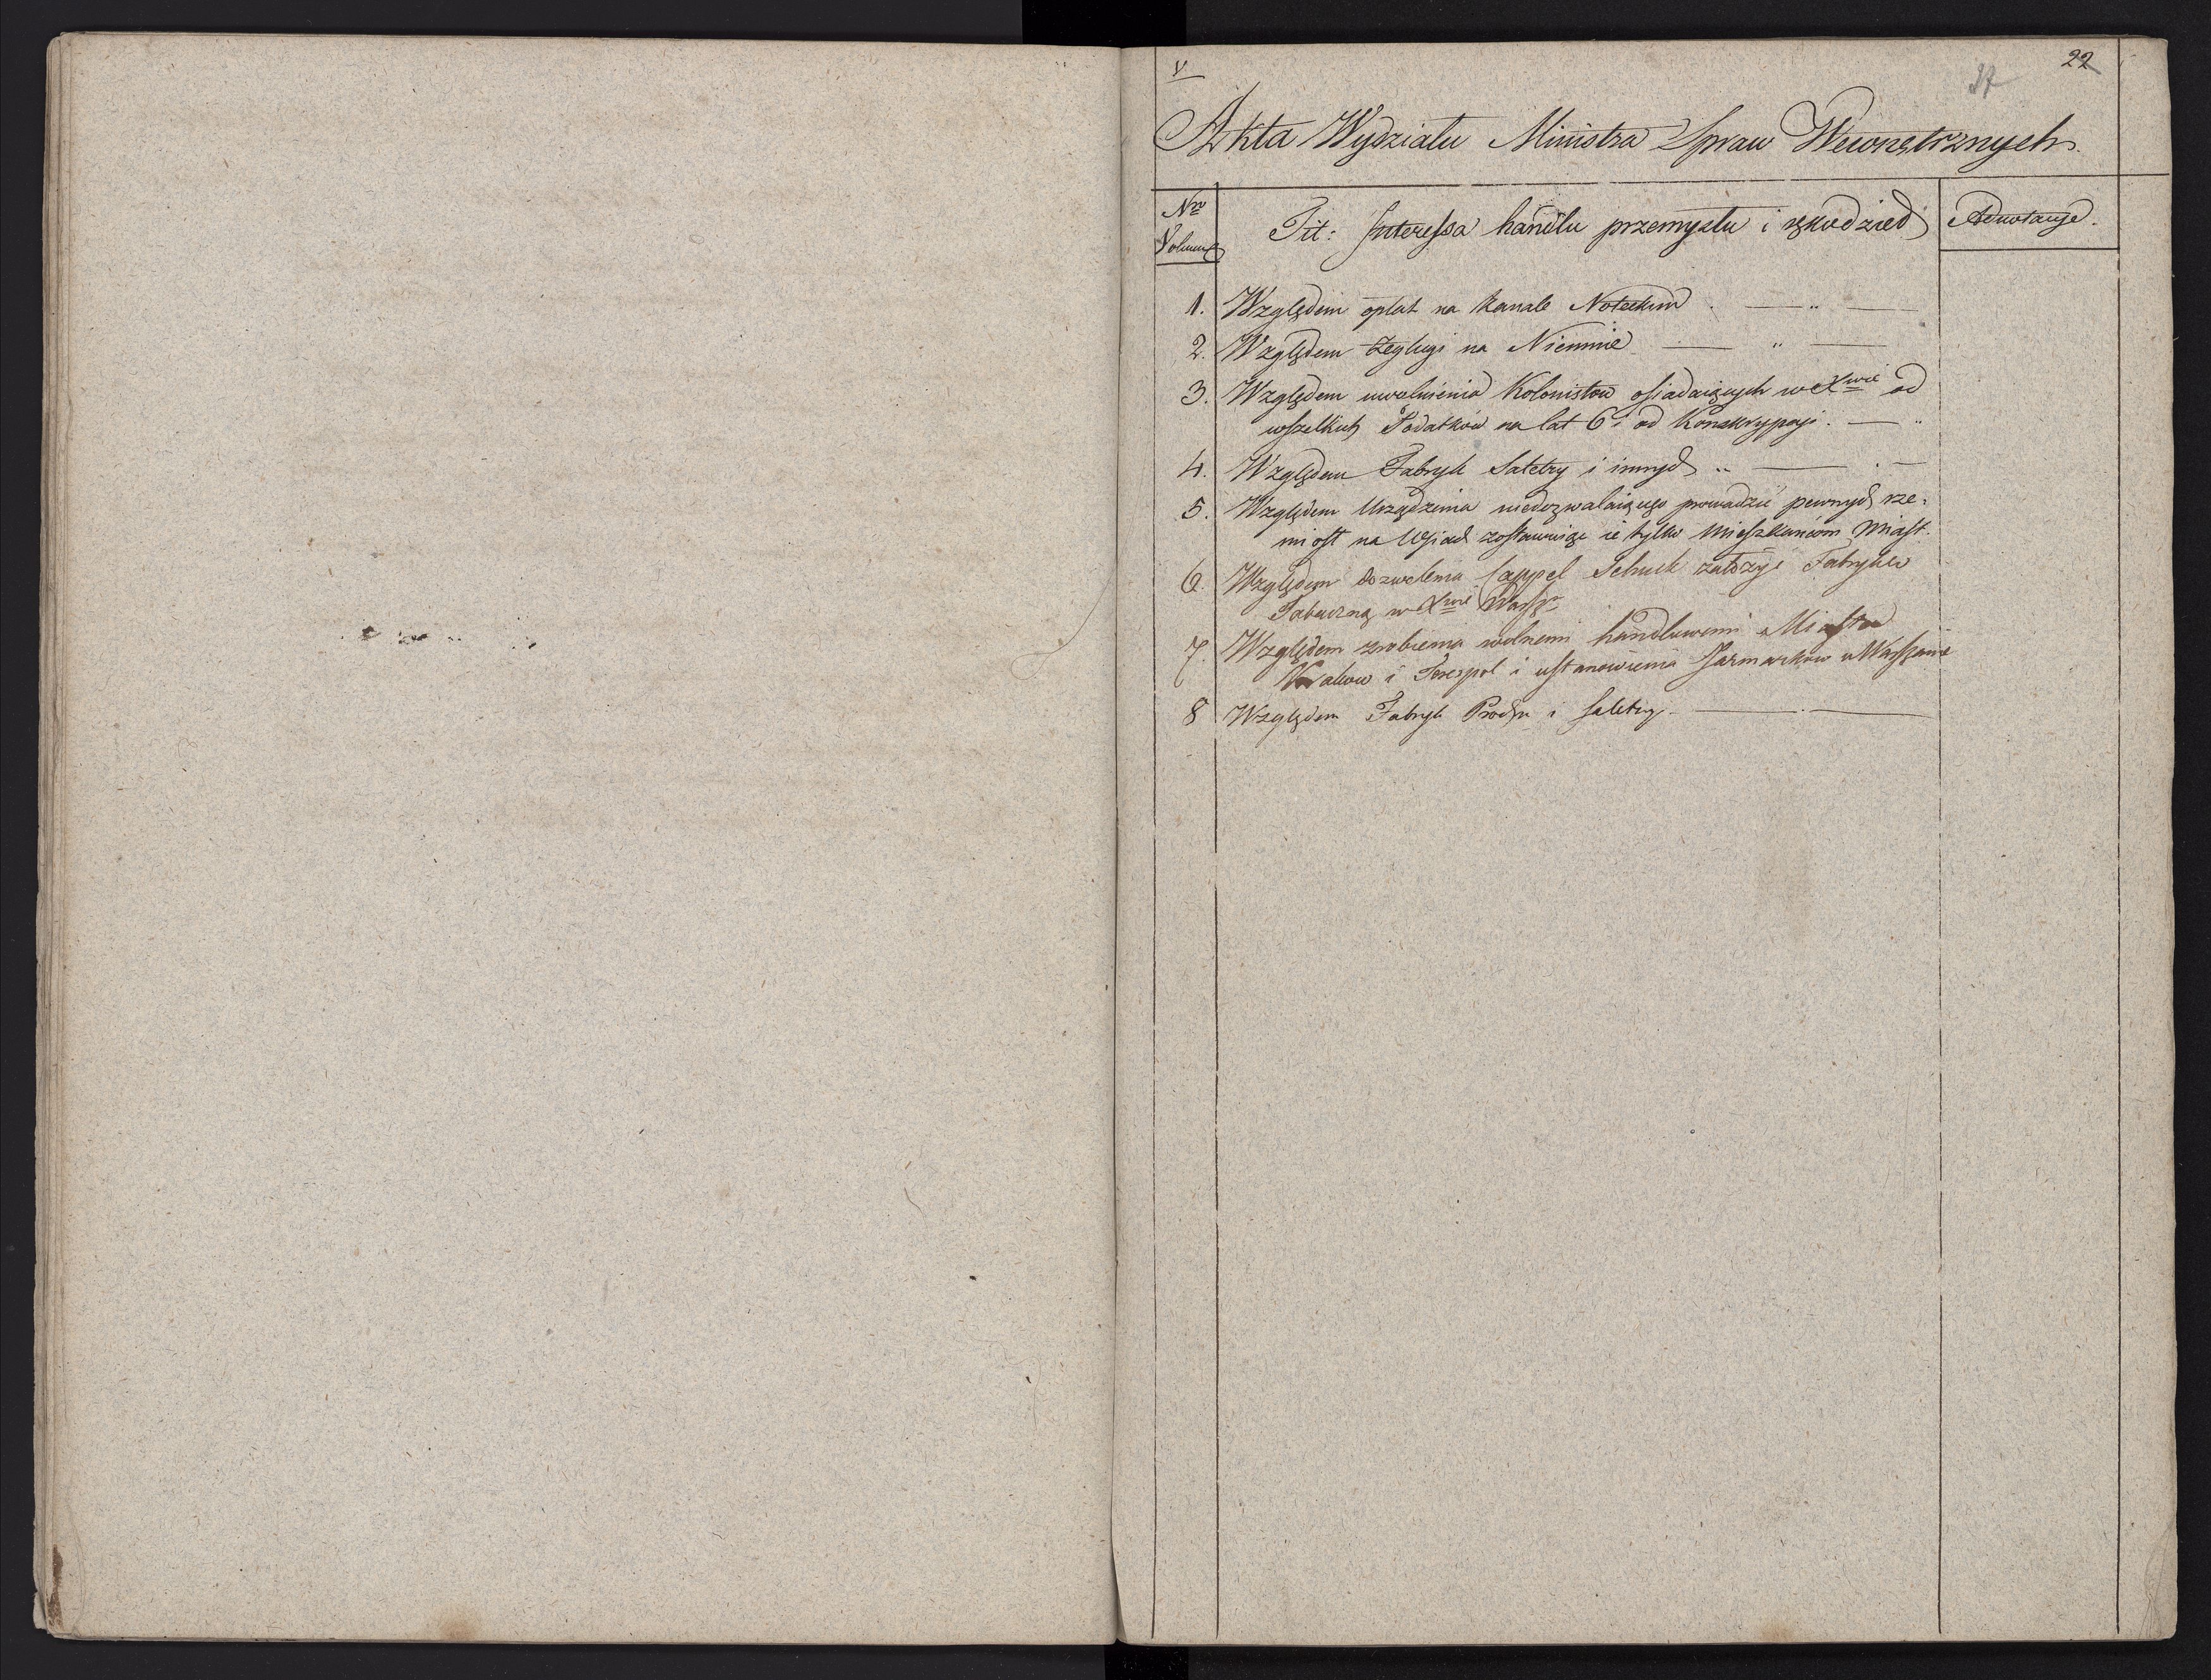 V
22
27
Akta Wydziału Ministra Spraw Wewnętrznych.
Nro Volum:
Tit: Interessa handlu przemysłu i rękodzieł
Adnotacye.
1. Względem opłat na Kanale Noteckim
2. Względem żeglugi na Niemnie
3. Względem uwolnienia Kolonistow osiadaiących w Xwie od
wszelkich Podatków na lat 6 i od Konskrypcyi.
4. Względem Fabryk Saletry i innych
5. Względem Urządzenia niedozwalaiącego prowadzić pewnych rze-
miosł na Wsiach zostawuiąc ie tylko Mieszkańcom Miast.
6. Względem dozwolenia Cappel Schuch założyć Fabrykę
Tabaczną w Xwie Warsz:
7. Względem zrobienia wolnemi handlowemi Miasta
Krakow i Terespol i ustanowienia Jarmarkow w Warszawie
8 Względem Fabryk Prochu i Saletry.